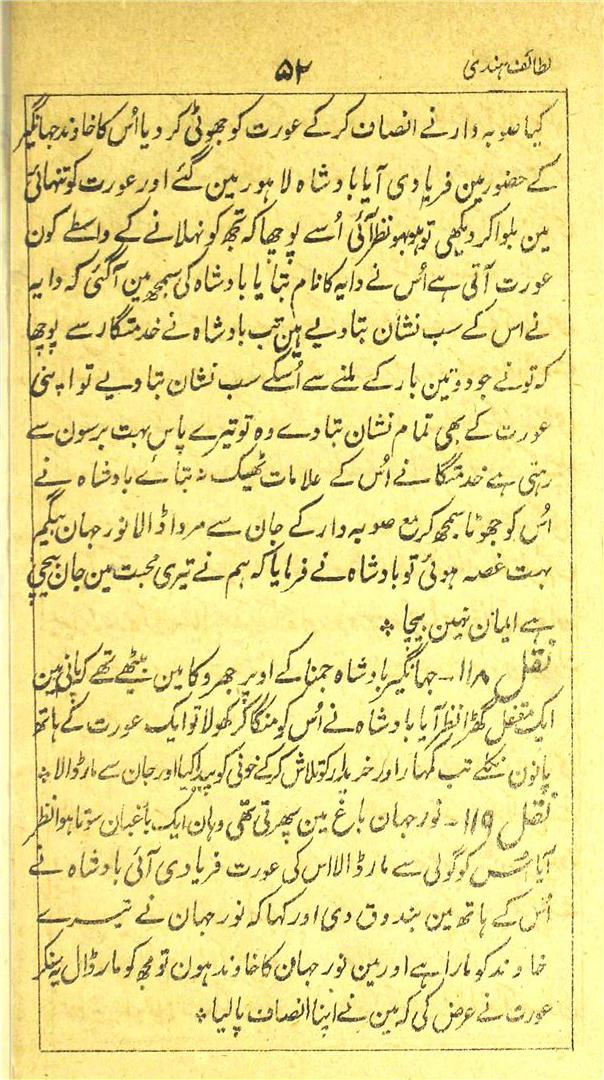 لطائف ہندی ۵۲
کیا صوبہ دار نے انصاف کرکے عورت کو جھوٹی کردیا اُس کا خاوند جہانگیر
کے حضور مین فریادی آیا بادشاہ لاہور مین گئے اور عورت کو تنہائی
مین بلواکر دیکھی تو ہوبہو نظر آئی اُسے پوچھا کہ تجھ کو نہلانے کے واسطے کون
عورت آتی ہے اُس نے دایہ کا نام بتایا بادشاہ کی سمجھ مین آگئی کہ دایہ
نے اس کے سب نشان بتادیے ہین تب بادشاہ نے خدمتگار سے پوچھا
کہ تونے جو دو تین بار کے ملنے سے اُسکے سب نشان بتادیے تو اپنی
عورت کے بھی تمام نشان بتادے وہ تو تیرے پاس بہت برسون سے
رہتی ہے خدمتگا نے اُس کے علامات ٹھیک نہ بتائے بادشاہ نے
اُس کو جھوٹا سمجھ کر مع صوبہ دار کے جان سے مرواڈالا نورجہان بیگم
بہت غصہ ہوئی تو بادشاہ نے فرمایا کہ ہم نے تیری محبت مین جان بیچی
ہے ایمان نہین بیچا ؞
نقل ۱۱۸ ـ جہانگیر بادشاہ جمنا کے اوپر جھروکا مین بیٹھے تھے کہ پانی مین
ایک مقفل گھڑا نظر آیا بادشاہ نے اُس کو منگاکر کھولا تو ایک عورت کے ہاتھ
پانون نکلے تب کمہار اور خریدار کو تلاش کرکے خونی کو پیدا کیا اور جان سے مارڈالا ؞
نقل ۱۱۹ ـ نورجہان باغ مین پھرتی تھی وہان ایک باغبان سوتا ہوا نظر
آیا اُس کو گولی سے مارڈالا اس کی عورت فریادی آئی بادشاہ نے
اُس کے ہاتھ مین بندوق دی اور کہا کہ نورجہان نے تیرے
خاوند کو مارا ہے اور مین نورجہان کا خاوند ہون تو مجھ کو مارڈال یہ سنکر
عورت نے عرض کی کہ مین نے اپنا انصاف پالیا ؞